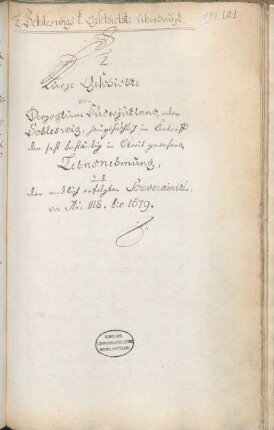 Z. Schleswigs. Geschichte überhaupt.
2
Kurze Geschichte
von
Herzogthum Süderjütland, oder
Schleswig, hauptsächlich in Betreff
der fast beständig in Streit gewesenen
Lehnsnehmung,
und
der endlich erfolgten Souverainité,
von Ao. 1118. bis 1679.